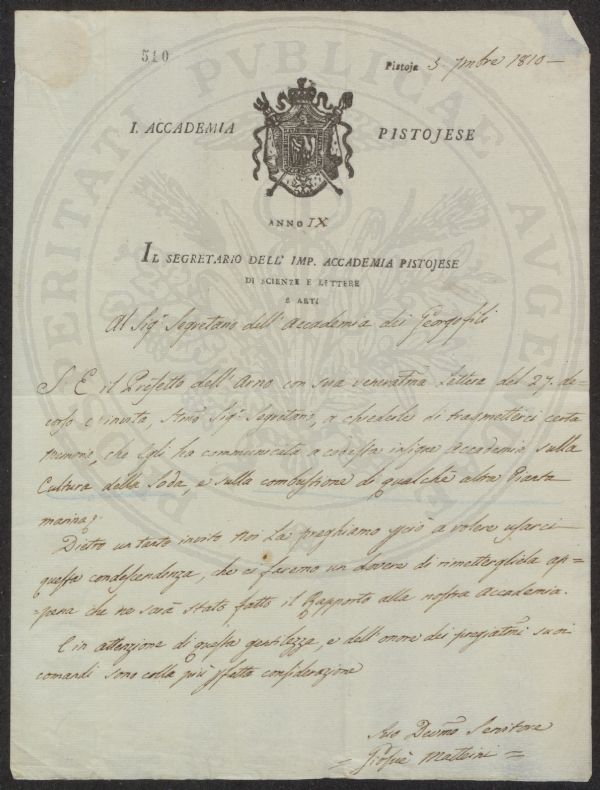 510
Pistoja 3. 7mbre 1810 —
I. ACCADEMIA PISTOJESE
ANNO IX
IL SEGRETARIO DELL' IMP. ACCADEMIA PISTOJESE
DI SCIENZE E LETTERE
E ARTI
Al Sigr Segretario dell' Accademia dei Georgofili
S. E il Prefetto dell' Arno con sua veneratma lettera del 27. de=
corso c'invita, Sigr Segretario, a chiederle di trasmetterci certa
memoria, che Egli ha communicata a codesta insigne Accademia sulla
Cultura della Soda, e sulla combustione di qualche altra Pianta
marina.
Dietro un tanto invito noi La preghiamo a volere usarci
questa condescendenza, che ci faremo un dovere di rimettergliela ap=
=pena che ne sarà stato fatto il Rapporto alla nostra Accademia.
E in attenzione di questa gentilezza, e dell' onore dei pregiatmi suoi
comandi sono colla più considerazione
Suo Devmo Servitore
= Giosuè Matteini =
PROSPERITATI PUBLICAE AUGENDAE